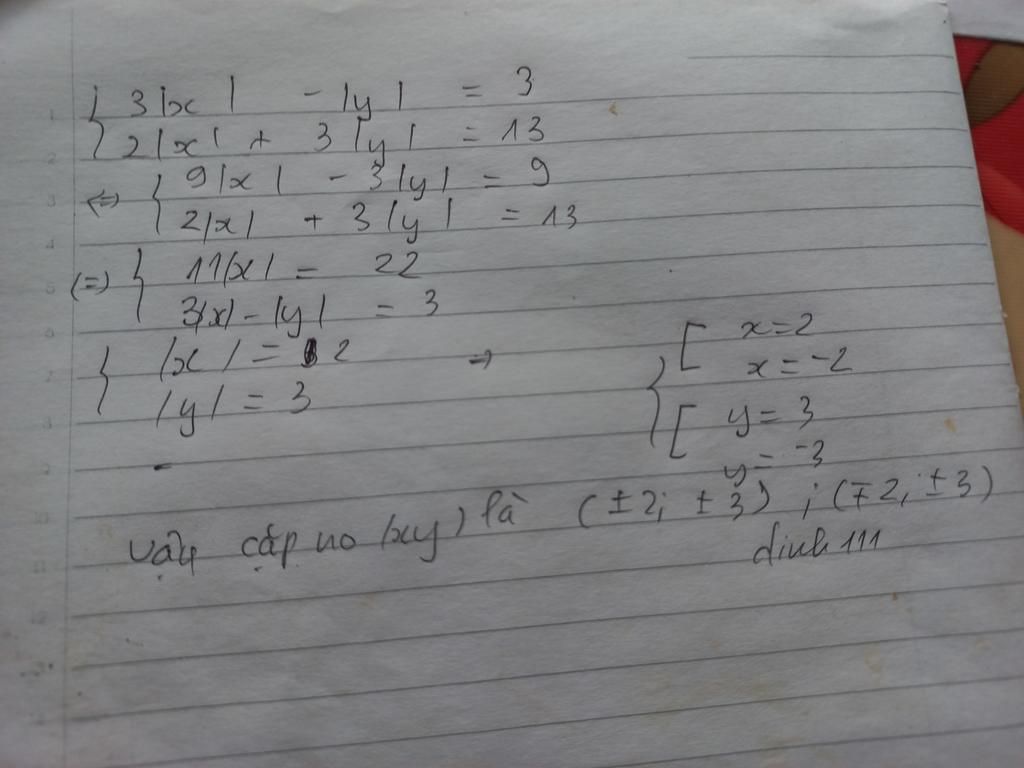 { 3|x| - |y| = 3
2|x| + 3|y| = 13
<=> { 9|x| - 3|y| = 9
2|x| + 3|y| = 13
(=) { 11|x| = 22
3|x| - |y| = 3
{ |x| = 2
|y| = 3
→ { [ x = 2
x = -2
[ y = 3
y = -3
vậy cặp no (xy) là (±2; ±3) ; (∓2; ±3)
dinh 111